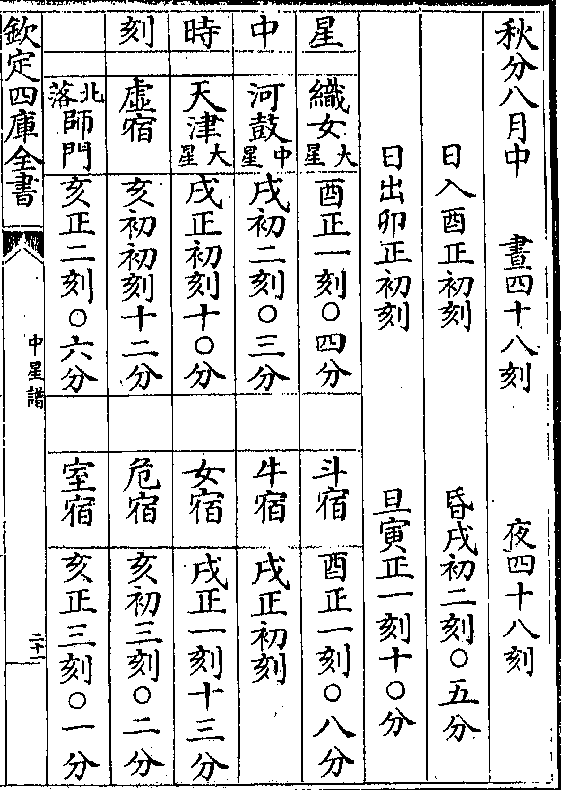 秋分八月中　晝四十八刻　夜四十八刻
日入酉正初刻　昏戌初二刻〇五分
日出卯正初刻　旦寅正一刻十〇分
星　織女大星　酉正一刻〇四分　斗宿　酉正一刻〇八分
中　河鼓中星　戌初二刻〇三分　牛宿　戌正初刻
時　天津大星　戌正初刻十〇分　女宿　戌正一刻十三分
刻　虛宿　亥初初刻十二分　危宿　亥初三刻〇二分
北落師門　亥正二刻〇六分　室宿　亥正三刻〇一分
欽定四庫全書　中星譜　二十一